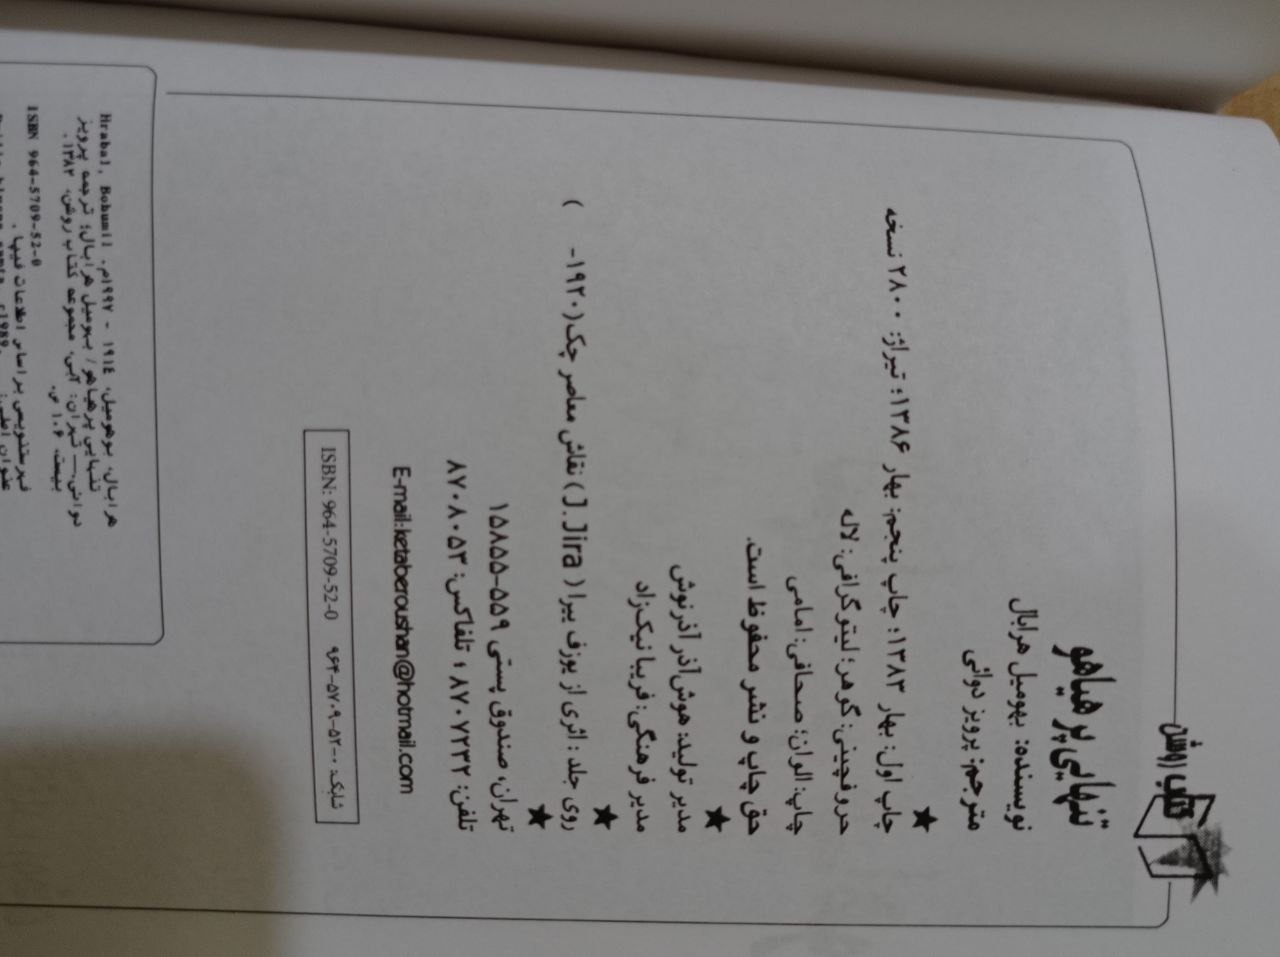 کتاب روشن
تنهایی پر هیاهو
نویسنده: بهومیل هرابال
مترجم: پرویز دوائی
★
چاپ اول: بهار ۱۳۸۳؛ چاپ پنجم: بهار ۱۳۸۶؛ تیراژ: ۲۸۰۰ نسخه
حروفچینی: گوهر؛ لیتوگرافی: لاله
چاپ: الوان؛ صحافی: امامی
حق چاپ و نشر محفوظ است.
★
مدیر تولید: هوش‌آذر آذرنوش
مدیر فرهنگی: فریبا نیک‌زاد
★
روی جلد: اثری از یوزف ییرا ( J.Jira) نقاش معاصر چک(۱۹۲۰- )
★
تهران، صندوق پستی ۵۵۹-۱۵۸۵۵
تلفن: ۸۷۰۷۲۳۲ ؛ تلفاکس: ۸۷۰۸۰۵۳
E-mail:ketaberoushan@hotmail.com
ISBN: 964-5709-52-0 شابک: ۰-۵۲-۵۷۰۹-۹۶۴
هرابال، بوهومیل، ۱۹۱٤ - ۱۹۹۷م. Hrabal, Bohumil
تنهایی پرهیاهو/ بهومیل هرابال؛ ترجمه پرویز
دوائی.— تهران: آبی، مجموعه کتاب روشن، ۱۳۸۲.
بیست، ۱۰۶ ص.
ISBN 964-5709-52-0
فهرستنویسی بر اساس اطلاعات فیپا .
عنوان اصلی: c1989.